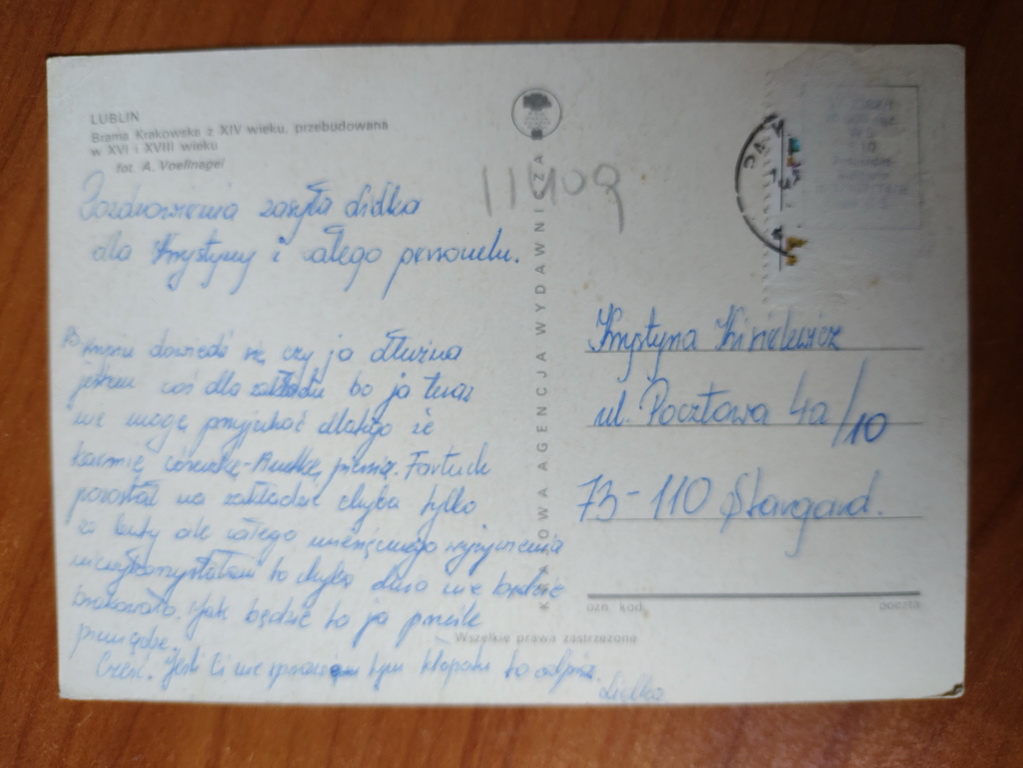 LUBLIN
Brama Krakowska z XIV wieku, przebudowana
w XVI i XVIII wieku
fot. A. Voellnagel
Pozdrowienia zasyła Lidka
dla Krystyny i całego personelu.
PS Krysiu dowiedz się czy ja dłużna
jestem coś dla zakładu bo ja teraz
nie mogę przyjechać dlatego że
karmię córeczkę - piersią. Fartuch
pozostał na zakładzie chyba tylko
za buty ale całego
niewykorzystałam to chyba dużo nie będzie
brakowało. Jak będzie to ja prześlę
pieniądze.
Cześć. Jeśli Ci nie sprawiam tym kłopotu to odpisz.
Lidka
11409
KRAJOWA AGENCJA WYDAWNICZA
Krystyna Kisielewicz
ul. Pocztowa 4a/10
73-110 Stargard.
ozn. kod. poczta
Wszelkie prawa zastrzeżone